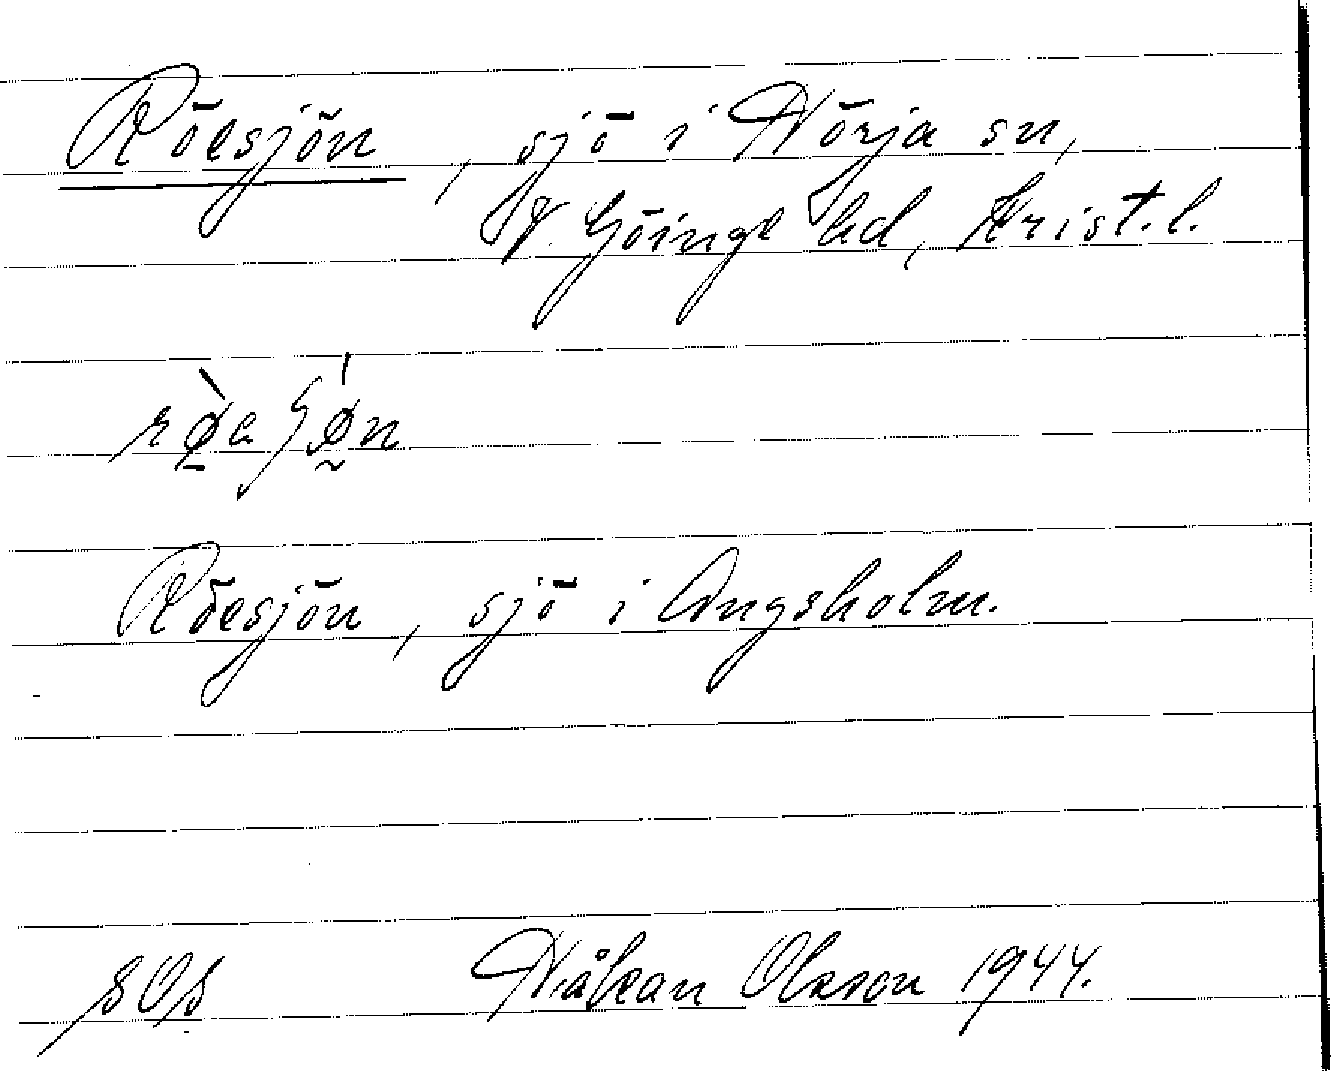 Röesjön, sjö i Hörja sn,
V. Göinge hd, Krist. l.
Röesjön, sjö i Ängsholm.
Håkan Olsson 1944.